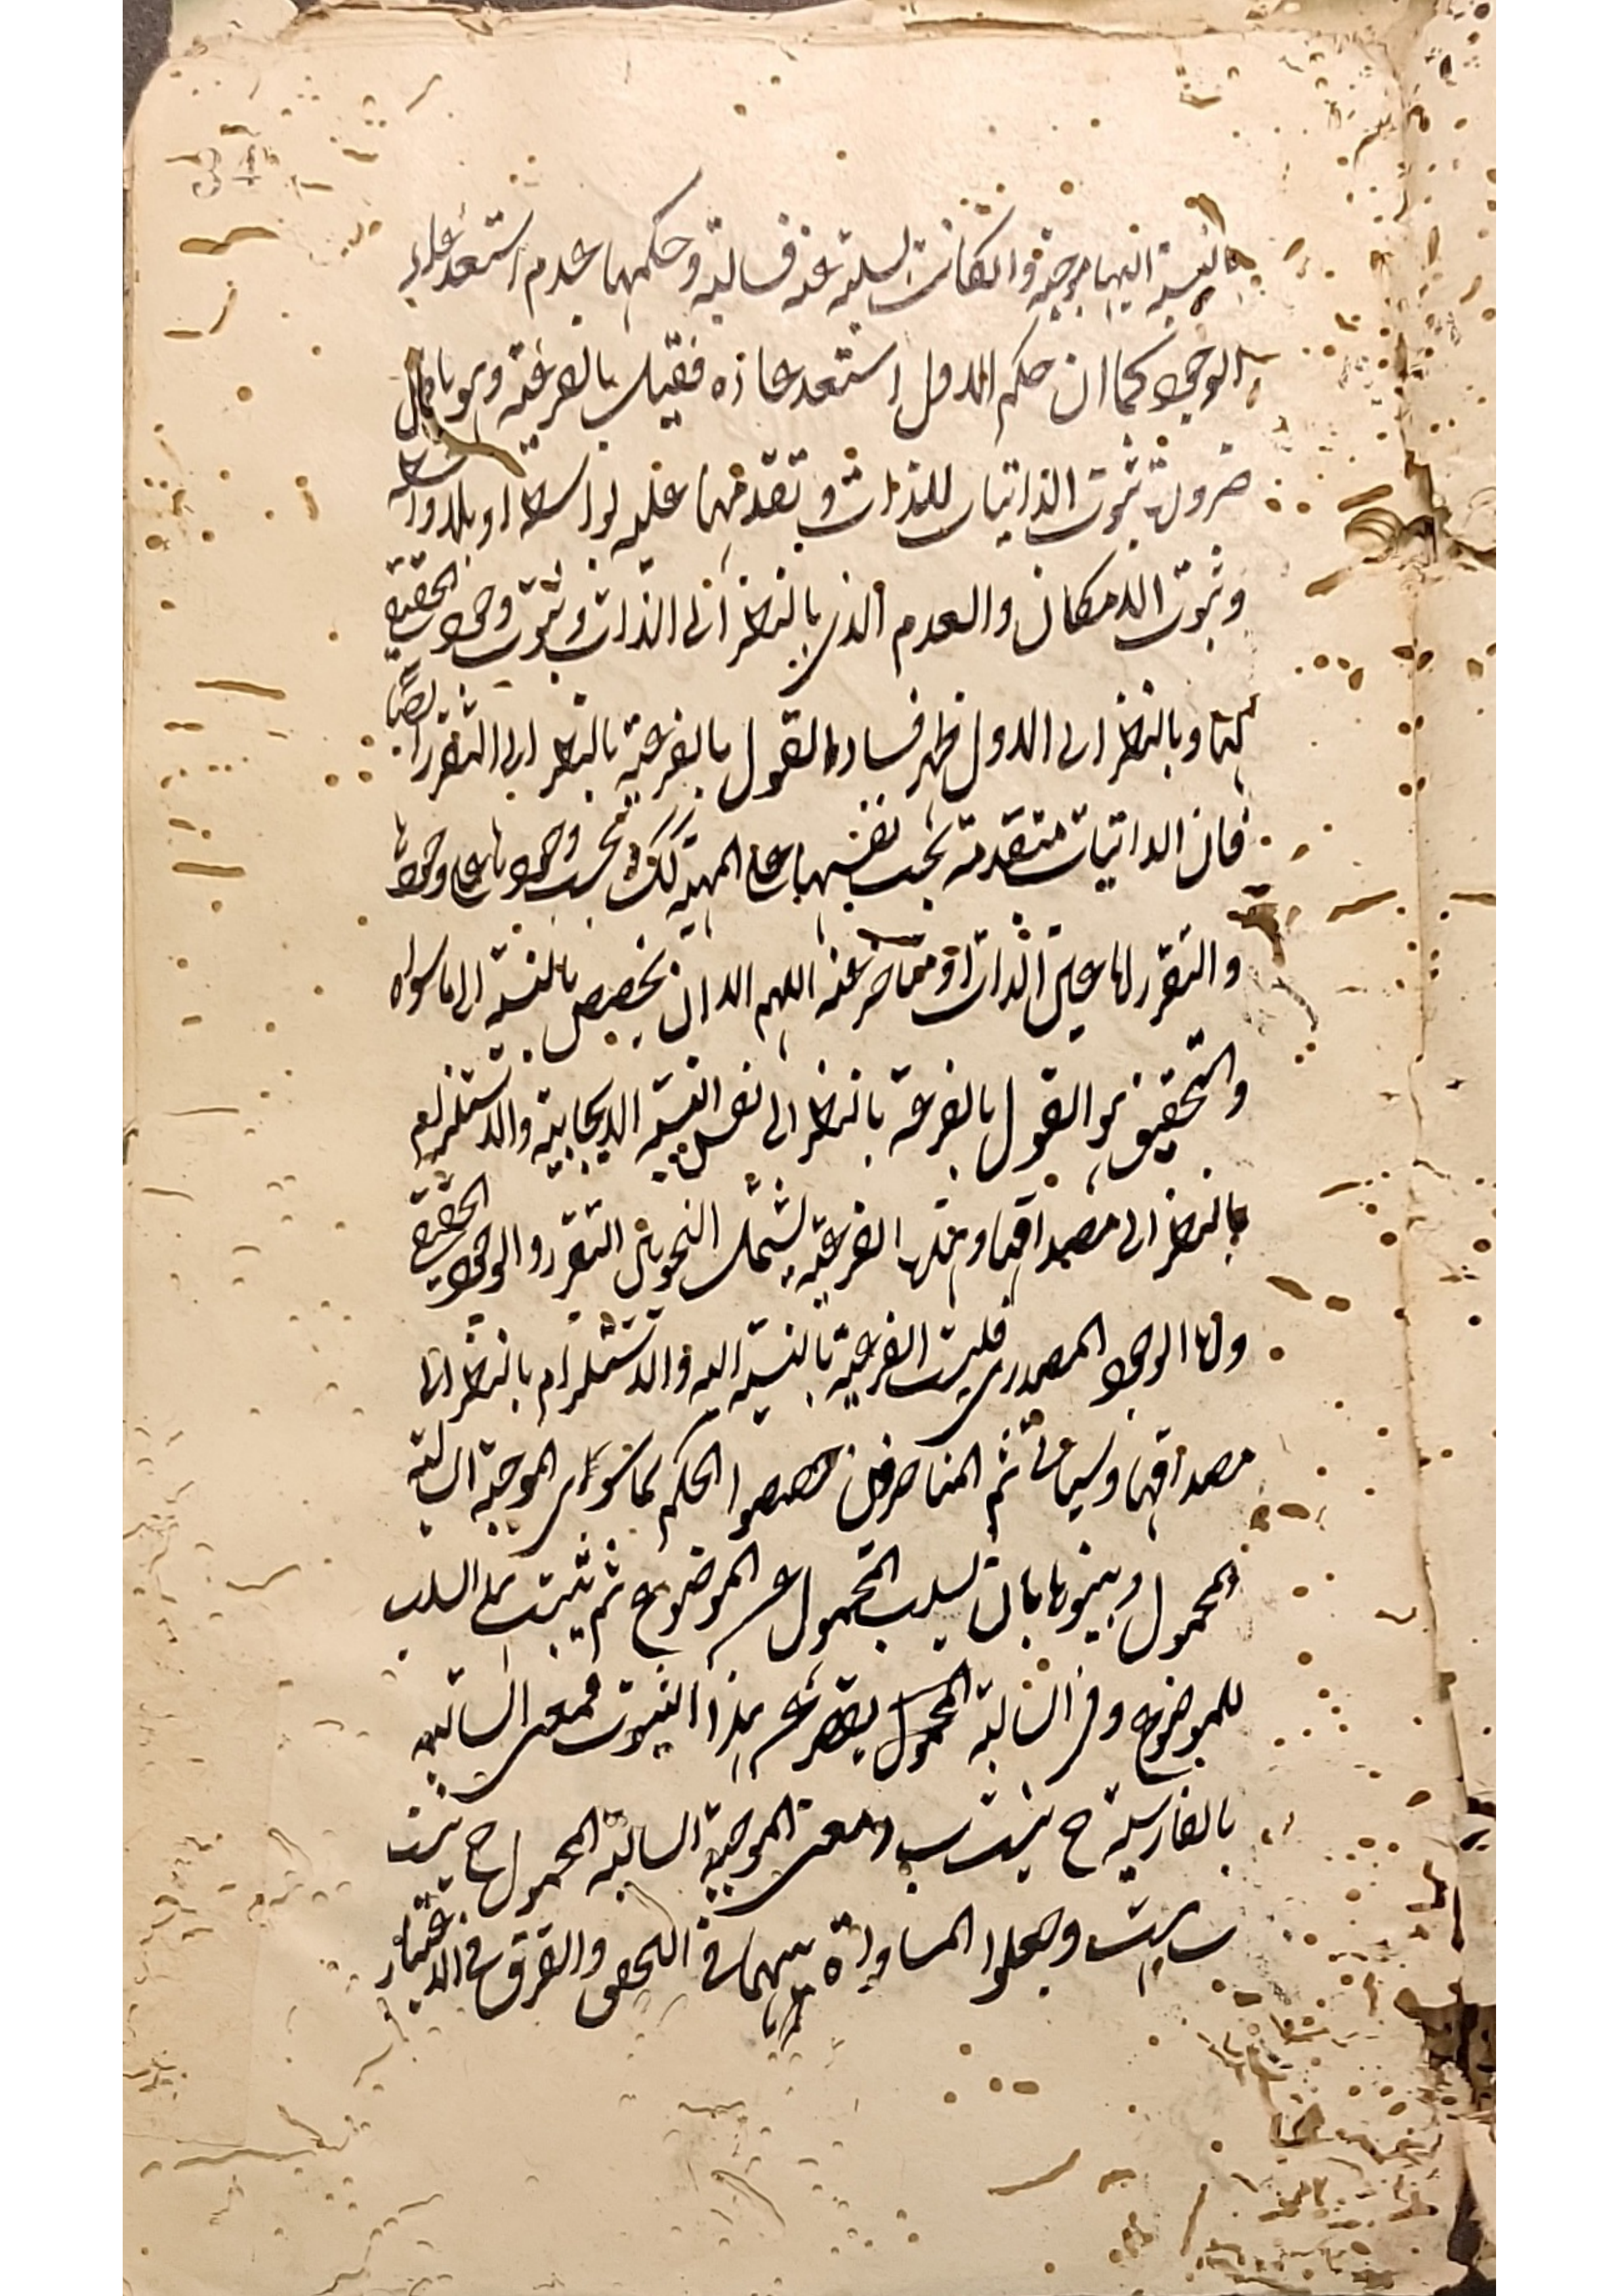 بالنسبة اليها موجبة وان كانت لسلبه عنه فسالبة وحكمها عدم استدعاء
الوجود كما ان حكم الاول استدعاؤه فقيل بالفرعية وهو باطل
ضرورة ثبوت الذاتيات للذات وتقدمها عليه بواسطة او بلا واسطة
وثبوت الامكان والعدم الذى بالنظر الى الذات وثبوت وجود الحقيقى
لها وبالنظر الى الاول ظهر فساد القول بالفرعية بالنظر الى التقرر ايضا
فان الذاتيات متقدمة بحسب نفسها على المهية كذلك بحسب وجودها على وجودها
والتقرر اما عين الذات او متاخر عنه اللهم الا ان يخصص بالنسبة الى ما سواه
والتحقيق هو القول بالفرعية بالنظر الى نفس النسبة الايجابية والاستلزام
بالنظر الى مصداقها ومنها الفرعية يشمل النحوين التقرر والوجود الحقيقى
واما الوجود المصدرى فليست الفرعية بالنسبة اليه والاستلزام بالنظر الى
مصداقها وسياتى ثم المتاخرين خصصوا الحكم بما سوى الموجبة السالبة
المحمول وبينوها بان يسلب المحمول عن الموضوع ثم يثبت هذا السلب
للموضوع وفى السالبة المحمول يقصر عن هذا الثبوت فمعنى السالبة
بالفارسية ج نيست ب ومعنى الموجبة السالبة المحمول ج نيست
ب است وجعلوا المساواة بينهما فى التحقق والفرق فى الاعتبار